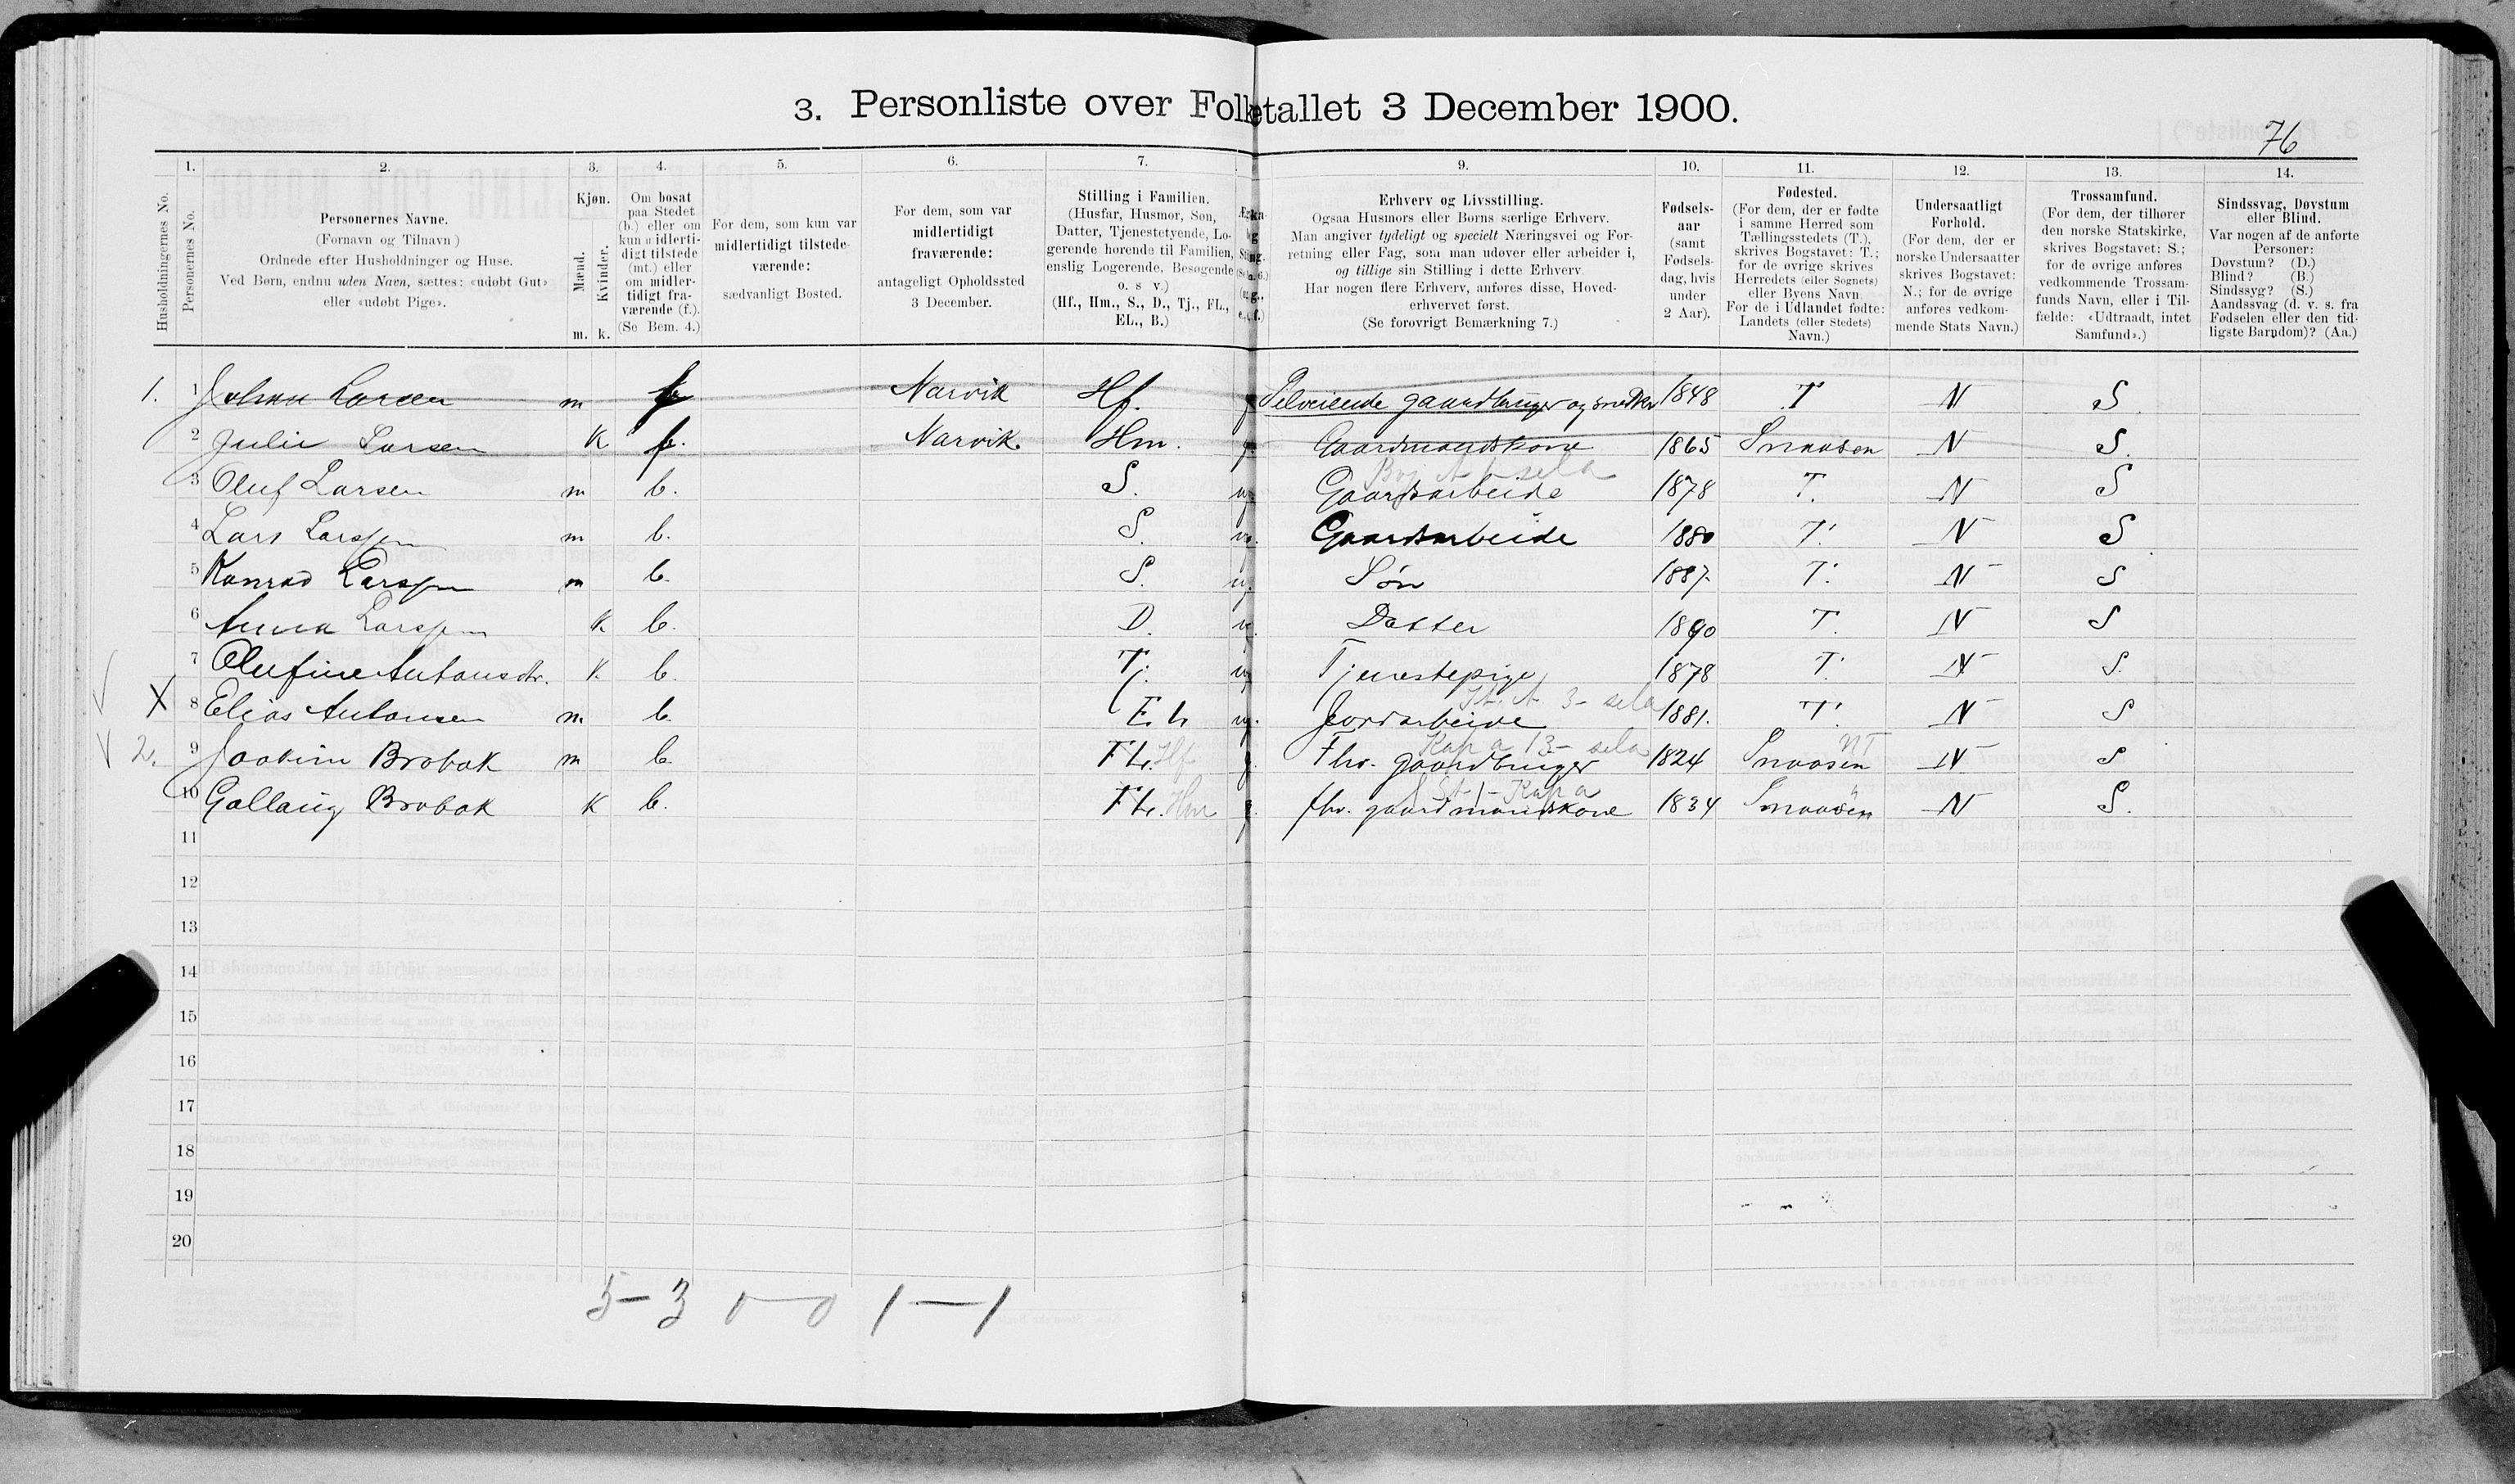 3. Personliste over Folketallet 3 December 1900.
76
1. 2. 3. 4. 5. 6. 7. 9. 10. 11. 12. 13. 14.
Husholdningernes No.
Personernes No.
Personernes Navne.
(Fornavn og Tilnavn)
Ordnede efter Husholdninger og Huse.
Ved Børn, endnu uden Navn, sættes: «udøbt Gut»
eller «udøbt Pige».
Kjøn.
Mænd.
Kvinder.
m. k.
Om bosat
paa Stedet
(b.) eller om
kun midlerti-
digt tilstede
(mt.) eller
om midler-
tidigt fra-
værende (f.).
(Se Bem. 4.)
For dem, som kun var
midlertidigt tilstede-
værende:
sædvanligt Bosted.
For dem, som var
midlertidigt
fraværende:
antageligt Opholdssted
3 December.
Stilling i Familien.
(Husfar, Husmor, Søn,
Datter, Tjenestetyende, Lo-
gerende hørende til Familien,
enslig Logerende, Besøgende
o. s v.)
(Hf., Hm., S., D., Tj., FL.,
EL., B.)
Erhverv og Livsstilling.
Ogsaa Husmors eller Børns særlige Erhverv.
Man angiver tydeligt og specielt Næringsvei og For-
retning eller Fag, som man udøver eller arbeider i,
og tillige sin Stilling i dette Erhverv.
Har nogen flere Erhverv, anføres disse, Hoved-
erhvervet først.
(Se forøvrigt Bemærkning 7.)
Fødsels-
aar
(samt
Fødsels-
dag, hvis
under
2 Aar).
Fødested.
(For dem, der er fødte
i samme Herred som
Tællingsstedets (T.),
skrives Bogstavet: T.;
for de øvrige skrives
Herredets (eller Sognets)
eller Byens Navn.
For de i Udlandet fødte:
Landets (eller Stedets)
Navn.)
Undersaatligt
Forhold.
(For dem, der er
norske Undersaatter
skrives Bogstavet:
N.; for de øvrige
anføres vedkom-
mende Stats Navn.)
Trossamfund.
(For dem, der tilhører
den norske Statskirke,
skrives Bogstavet: S.;
for de øvrige anføres
vedkommende Trossam-
funds Navn, eller i Til-
fælde: «Udtraadt, intet
Samfund».)
Sindssvag, Døvstum
eller Blind.
Var nogen af de anførte
Personer:
Døvstum? (D.)
Blind? (B.)
Sindssyg? (S.)
Aandssvag (d. v. s. fra
Fødselen eller den tid-
ligste Barndom)? (Aa.)
1. 1 Johan Larsen m f Narvik Hf. g Selveiende gaardbruger og snedker 1848 T N S.
2 Julie Larsen K f. Narvik Hm. g. Gaardmandskone 1865 Snaasen N S.
3 Oluf Larsen m b. S. ug Gaardsarbeide 1878 T. N S
4 Lars Larssen m b. S. ug. Gaardsarbeide 1880 T. N S
5 Konrad Larssen m b. S. ug. Søn 1887. T. N S
6 Anna Larssen K b. D. ug. Datter 1890 T. N S
7 Olufine Antonsdtr. K. b. Tj. ug Tjenestepige 1878 T. N S.
X 8 Elias Antonsen m b. E.L ug. Jordarbeide 1881. T. N S
2. 9 Joakim Brobak m b. FL. Hf g. Fhv. gaardbruger 1824 Snaasen NT N S
10 Gollaug Brobak K b. FL. Hm g. fhv. gaardmandskone 1834 Snaasen N S.
11
12
13
14
15
16
17
18
19
20
5-3 0-0 1-1